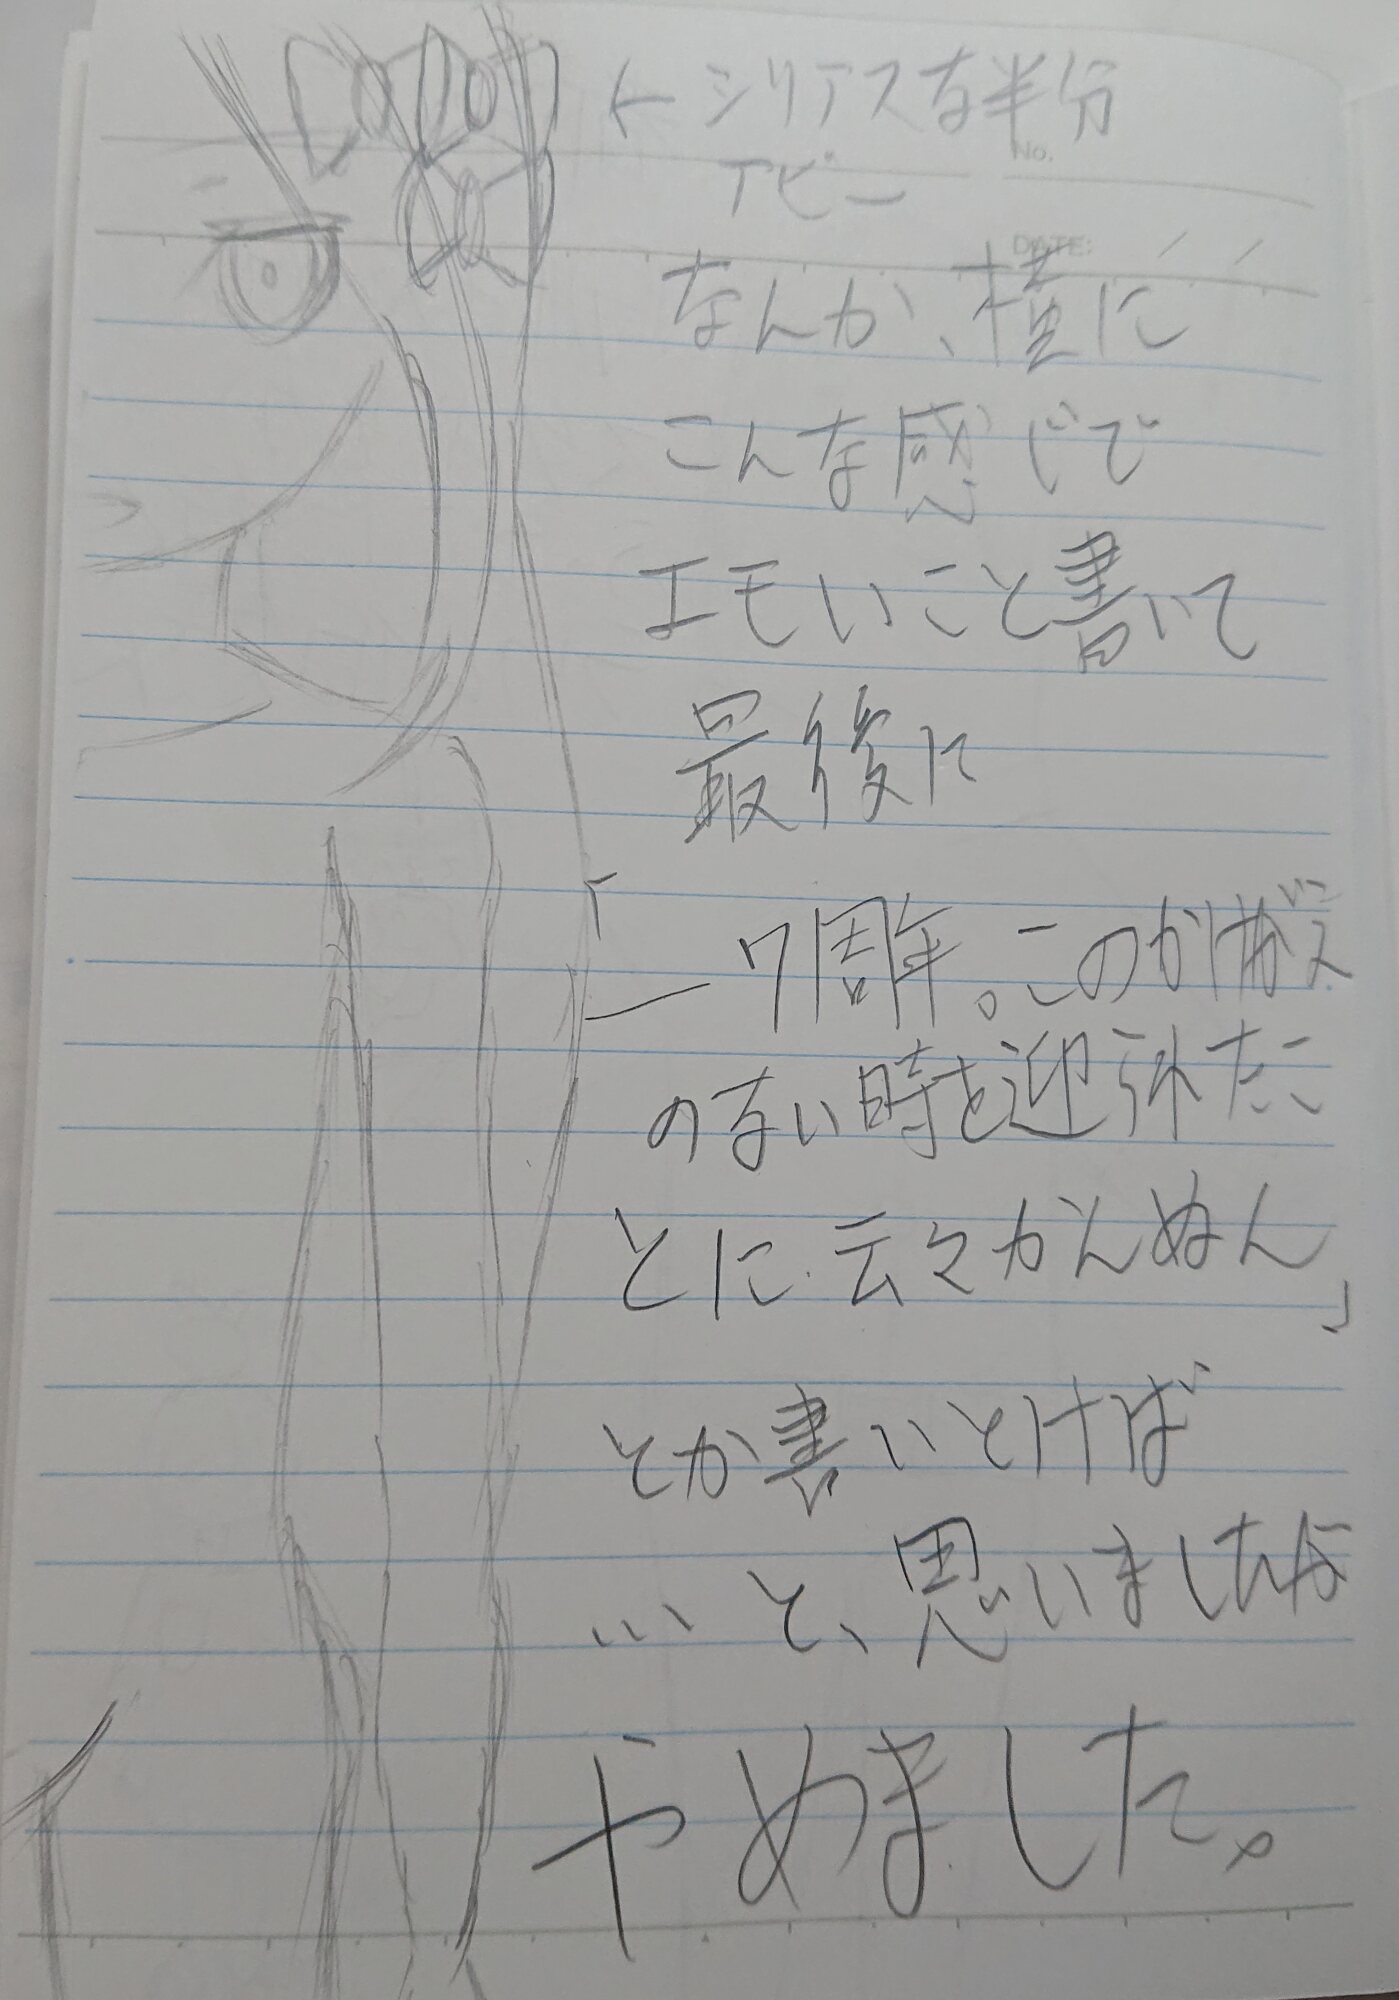 ←シリアスな半分
アビー
No.
DATE:
なんか、横に
こんな感じで
エモいこと書いて
最後に
「
―7周年。このかけがえ
のない時を迎えれたこ
とに云々かんぬん」
とか書いとけば
…と、思いましたが
やめました。